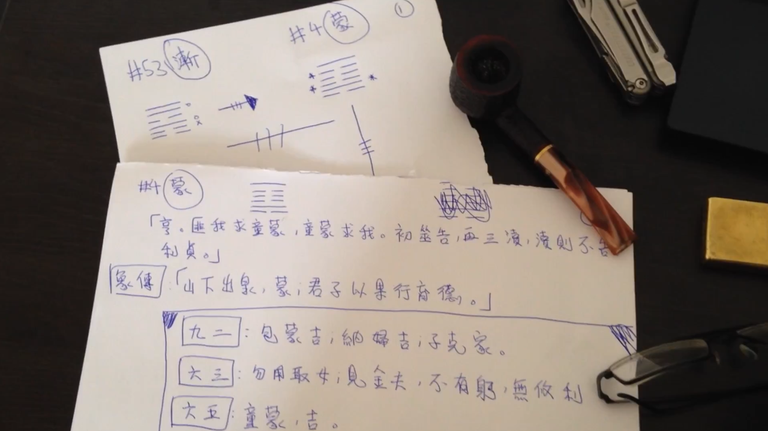 #53 漸
#4 蒙
①
#4 蒙
「亨。匪我求童蒙,童蒙求我。初筮告,再三瀆,瀆則不告
利貞。」
象傳:「山下出泉,蒙;君子以果行育德。」
九二:包蒙吉;納婦吉;子克家。
六三:勿用取女;見金夫,不有躬,無攸利
六五:童蒙,吉。